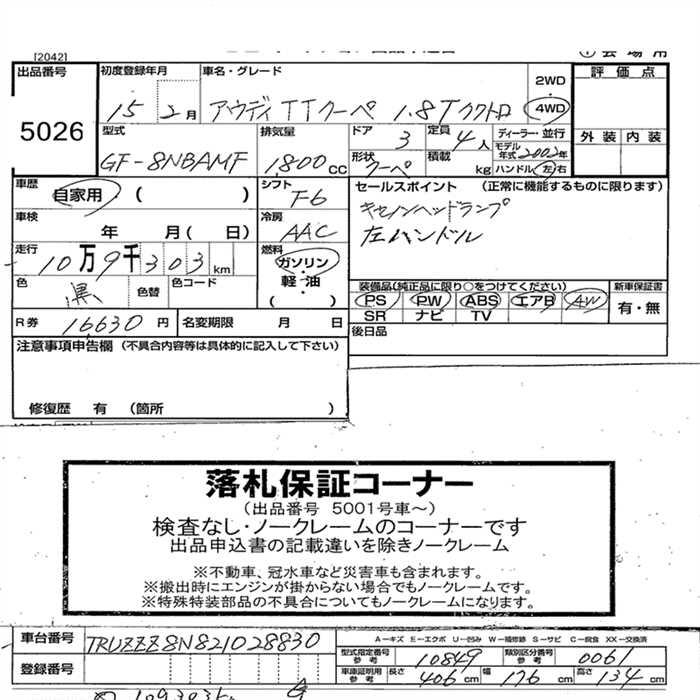 [2042]
出品番号
5026
初度登録年月
15 2月
車名・グレード
アウディTTクーペ 1.8Tクワトロ
2WD
4WD
評価点
外装 内装
型式
GF-8NBAMF
排気量
1,800cc
ドア
3
定員
4人
形状
クーペ
積載
kg
ディーラー・並行
モデル年式2002年
ハンドル 左右
車歴
自家用 ( )
シフト
F6
セールスポイント (正常に機能するものに限ります)
キセノンヘッドランプ
左ハンドル
車検
年 月( 日)
冷房
AAC
走行
10万9千303km
燃料
ガソリン・
軽・油
( )
色
黒
色替
色コード
装備品(純正品に限り○をつけてください)
PS PW ABS エアB AW
SR ナビ TV
新車保証書
有・無
R券
16,630円
名変期限 月 日
後日品
注意事項申告欄 (不具合内容等は具体的に記入して下さい)
修復歴 有 (箇所 )
落札保証コーナー
(出品番号 5001号車~)
検査なし・ノークレームのコーナーです
出品申込書の記載違いを除きノークレーム
※不動車、冠水車など災害車も含まれます。
※搬出時にエンジンが掛からない場合でもノークレームです。
※特殊特装部品の不具合についてもノークレームになります。
車台番号
TRUZZZ8N821028830
A-キズ E-エクボ U-凹み W-補修跡 S-サビ C-腐食 XX-交換済
登録番号
型式指定番号 参考 10849
類別区分番号 参考 0061
車庫証明用 参考 長さ 406cm 幅 176cm 高さ 134cm